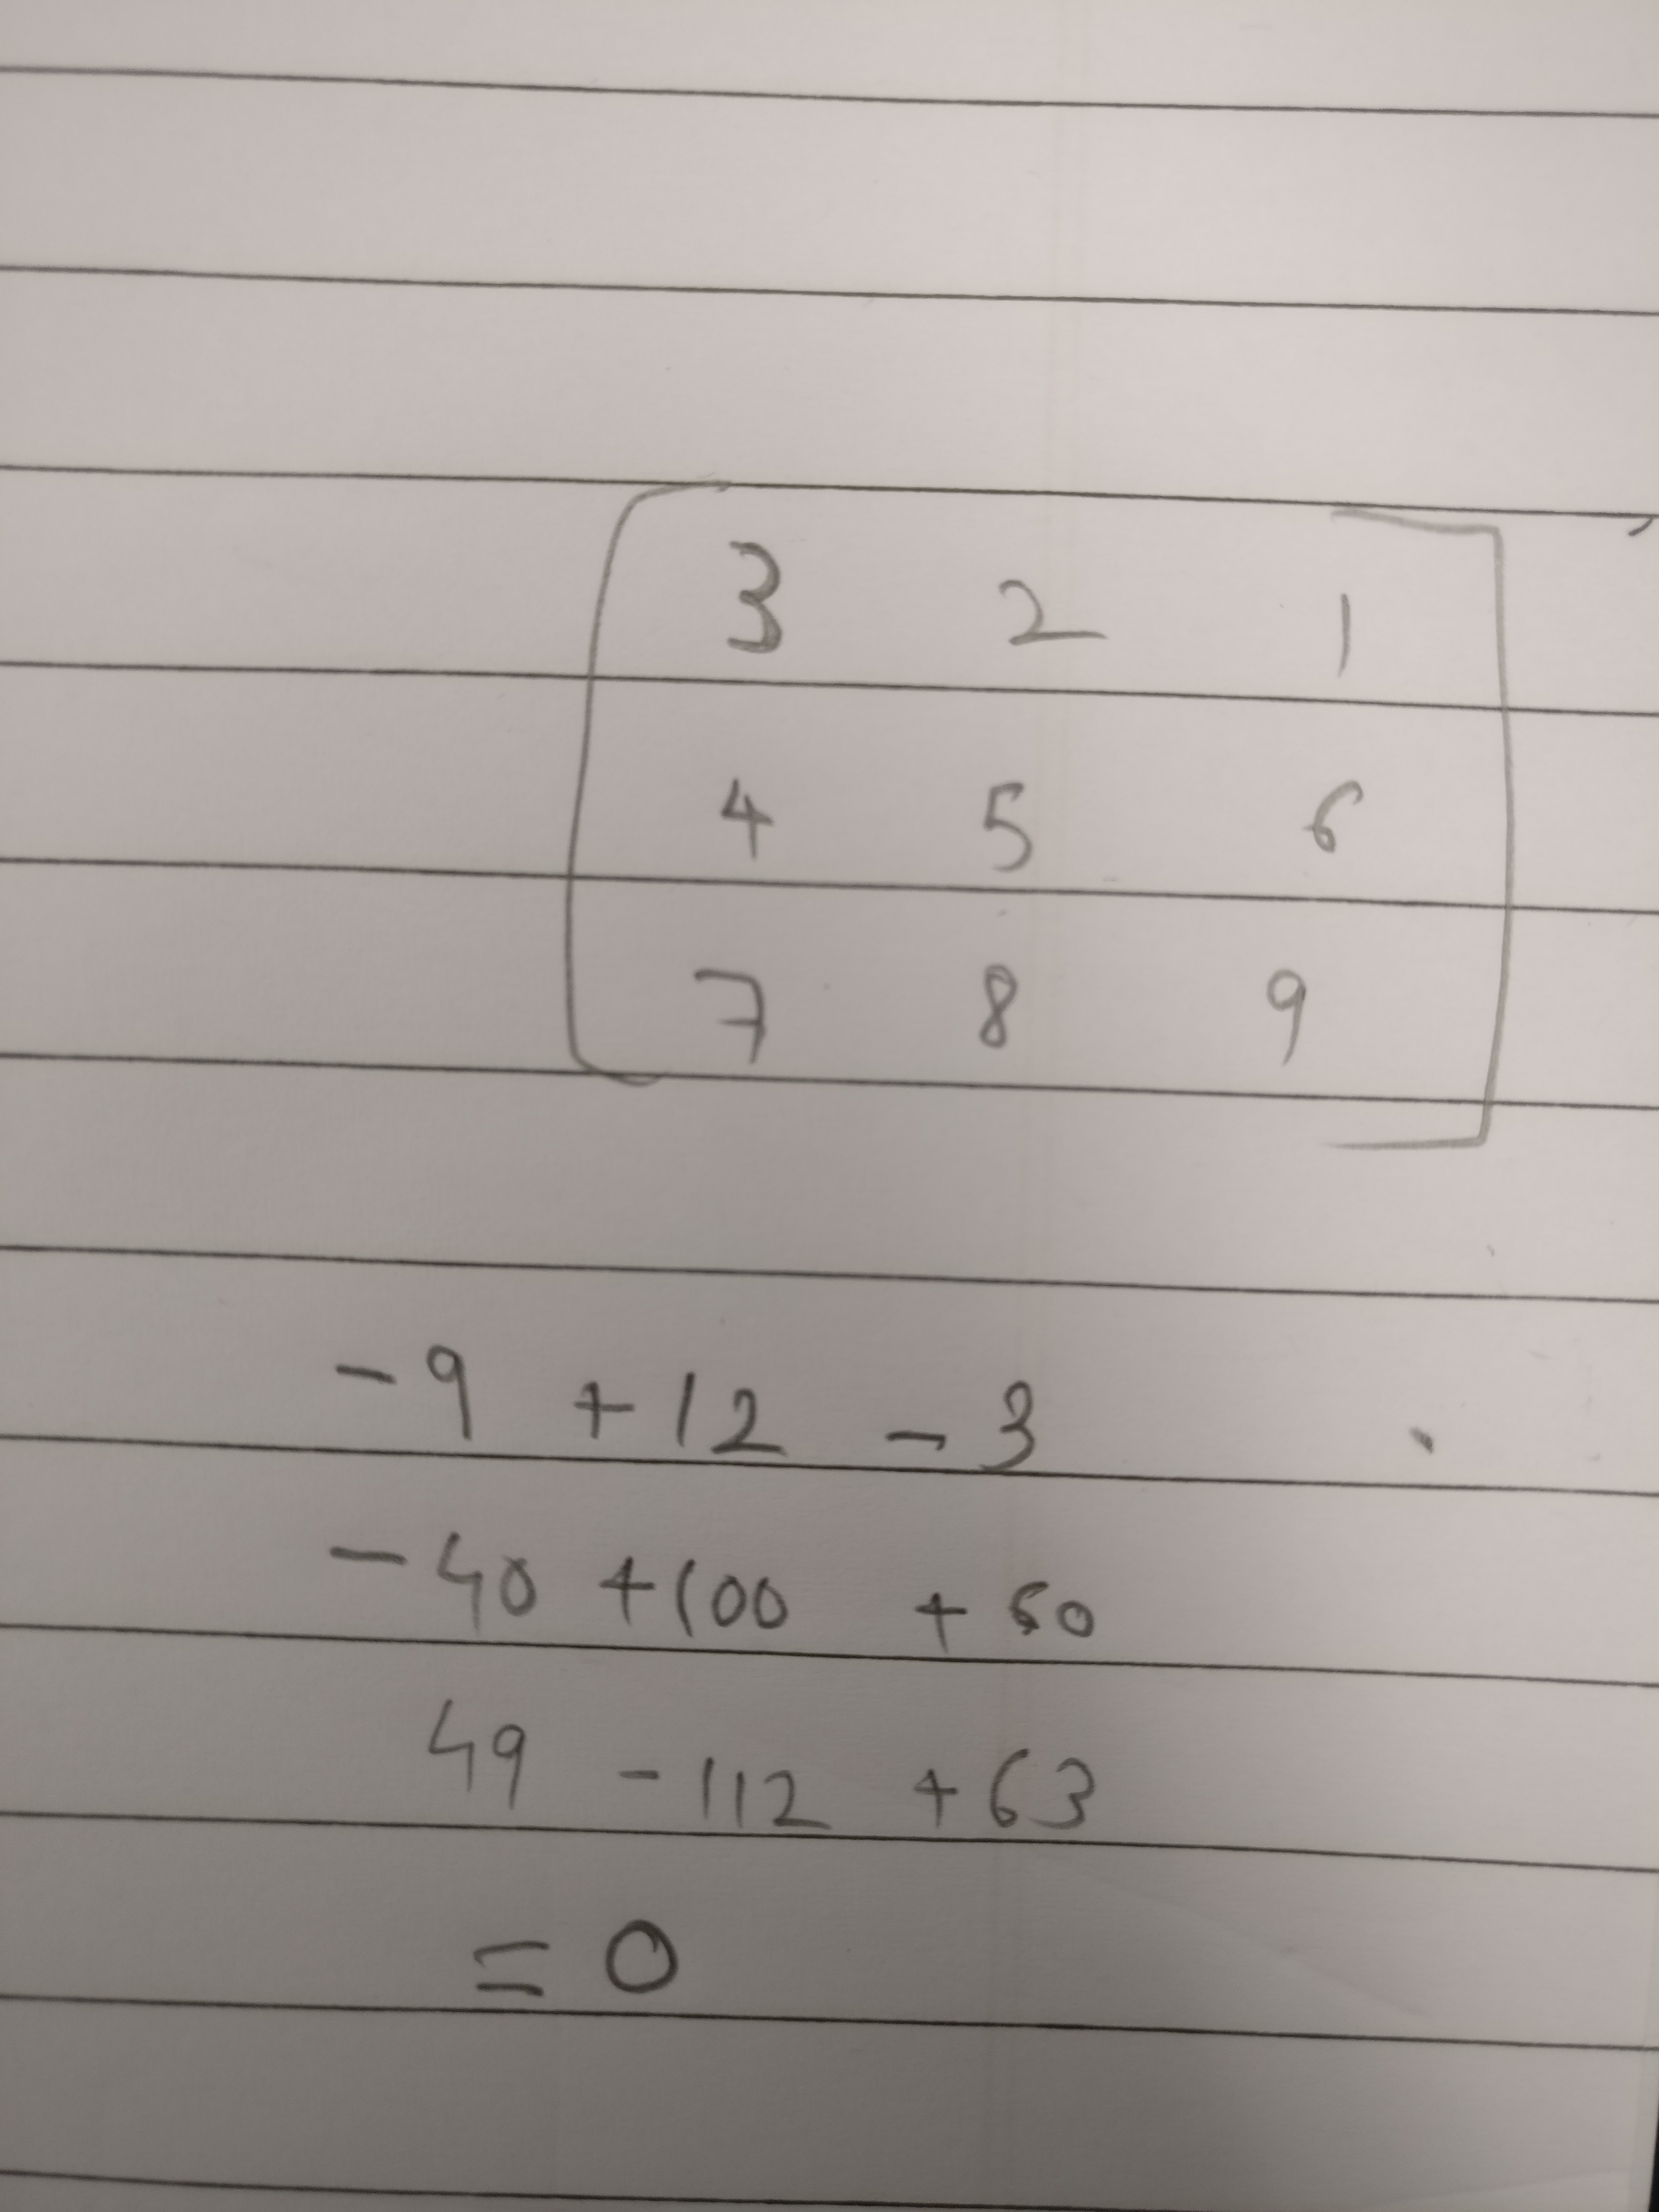 3 2 1
4 5 6
7 8 9
-9 +12 -3
-40 +100 +60
49 -112 +63
= 0